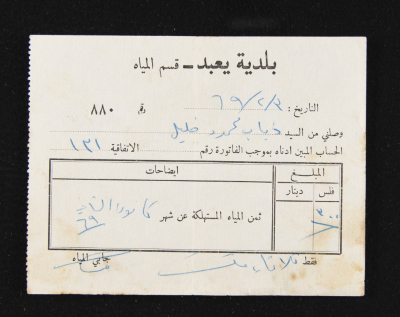 بلدية يعبد ــ قسم المياه
التاريخ : ٦٩/٢/٣ رقم ٨٨٠
وصلني من السيد ذياب محمود خليل
الحساب المبين ادناه بموجب الفاتورة رقم الاتفاقية ١٣١
المبلغ ايضاحات
فلس دينار
٣٠٠ ثمن المياه المستهلكة عن شهر كانون الثاني ٦٩
فقط ثلاثمائة فلس جابي المياه